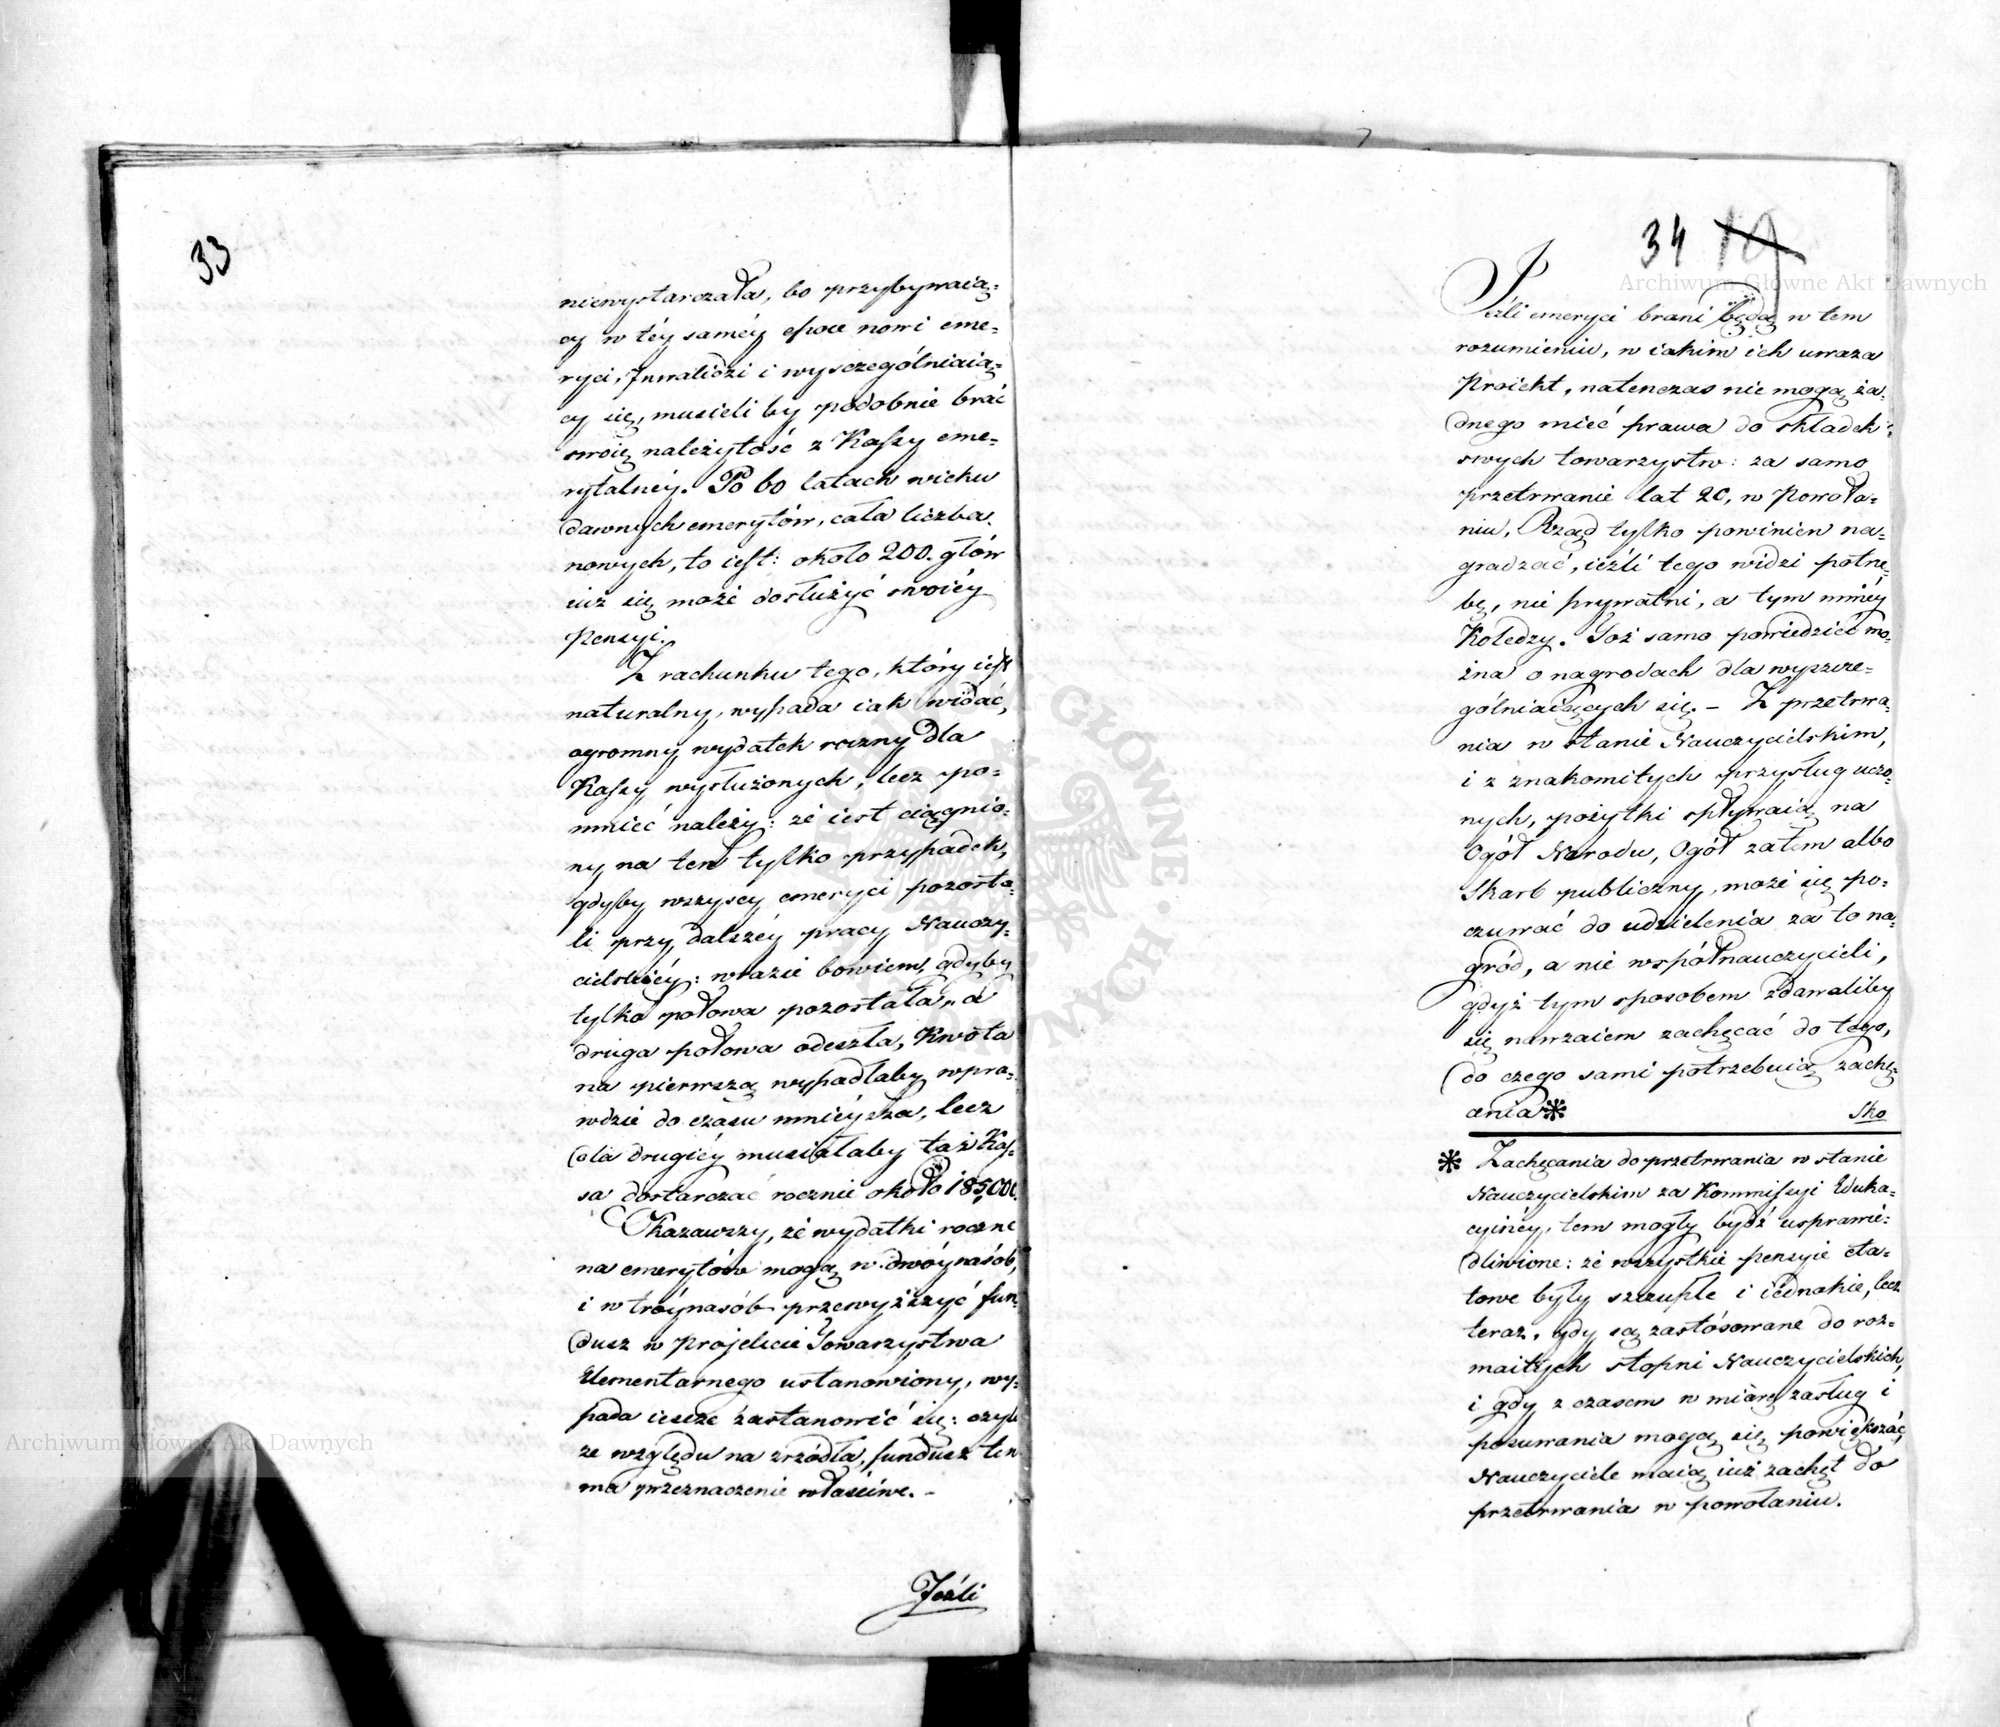 33
niewystarczała, bo przybywaią=
cy w téy saméy epoce nowi eme=
ryci, Inwalidzi i wyszczególniaią=
cy się, musieli by podobnie brać
swoię należytość z Kassy eme=
rytalnéy. Po 60 latach wieku
dawnych emerytów, cała liczba
nowych, to iest: około 200. głów
iuż się może dosłużyć swoiéy
Pensyi.
Z rachunku tego, który iest
naturalny, wypada iak widać,
ogromny wydatek roczny dla
Kassy wysłużonych, lecz po=
mnieć należy: że iest ciągnio=
ny na ten tylko przypadek,
gdyby wszyscy emeryci pozosta=
li przy dalszéy pracy Nauczy=
cielskiéy: w razie bowiem, gdyby
tylko połowa pozostała, a
druga połowa odeszła, Kwota
na pierwszą wypadłaby wpra=
wdzie do czasu mnieysza, lecz
dla drugiéy musiałaby taż Kas=
sa dostarczać rocznie około 185,000.
Okazawszy, że wydatki roczne
na emerytów mogą w dwóynasób,
i w tróynasób przewyższyć fun=
dusz w Projekcie Towarzystwa
Elementarnego ustanowiony, wy=
pada ieszcze zastanowić się: czyli
ze względu na źrzódła, fundusz ten
ma przeznaczenie właściwe. –
Jeźli
34 19
Jeźli emeryci brani będą w tem
rozumieniu, w iakim ich uważa
Proiekt, natenczas nie mogą ża=
dnego mieć prawa do składek
swych towarzystw: za samo
przetrwanie lat 20, w Powoła=
niu, Rząd tylko powinien na=
gradzać, ieźli tego widzi potrze=
bę, nie prywatni, a tym mniéy
Koledzy. Toż samo powiedzieć mo=
żna o nagrodach dla wyszcze=
gólniaiących się. – Z przetrwa=
nia w stanie Nauczycielskim,
i z znakomitych przysług uczo=
nych, pożytki spływaią na
Ogół Narodu, Ogół zatem albo
Skarb publiczny, może się po=
czuwać do udzielenia za to na=
gród, a nie współnauczyciele,
gdyż tym sposobem zdawaliby
się nawzaiem zachęcać do tego,
do czego sami potrzebuią zachę=
cenia *
Sko
* Zachęcania do przetrwania w stanie
Nauczycielskim za Kommissyi Eduka=
cyinéy, tem mogły bydź usprawie=
dliwione: że wszystkie pensyie eta=
towe były szczupłe i iednakie, lecz
teraz, gdy są zastósowane do roz=
maitych stopni Nauczycielskich,
i gdy z czasem w miarę zasług i
posuwania mogą się powiększać,
Nauczyciele maią iuż zachęt do
przetrwania w powołaniu.
Archiwum Główne Akt Dawnych
Archiwum Główne Akt Dawnych